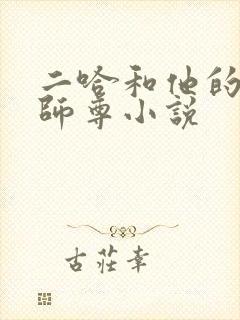 二哈和他的
師尊小説
古莊幸